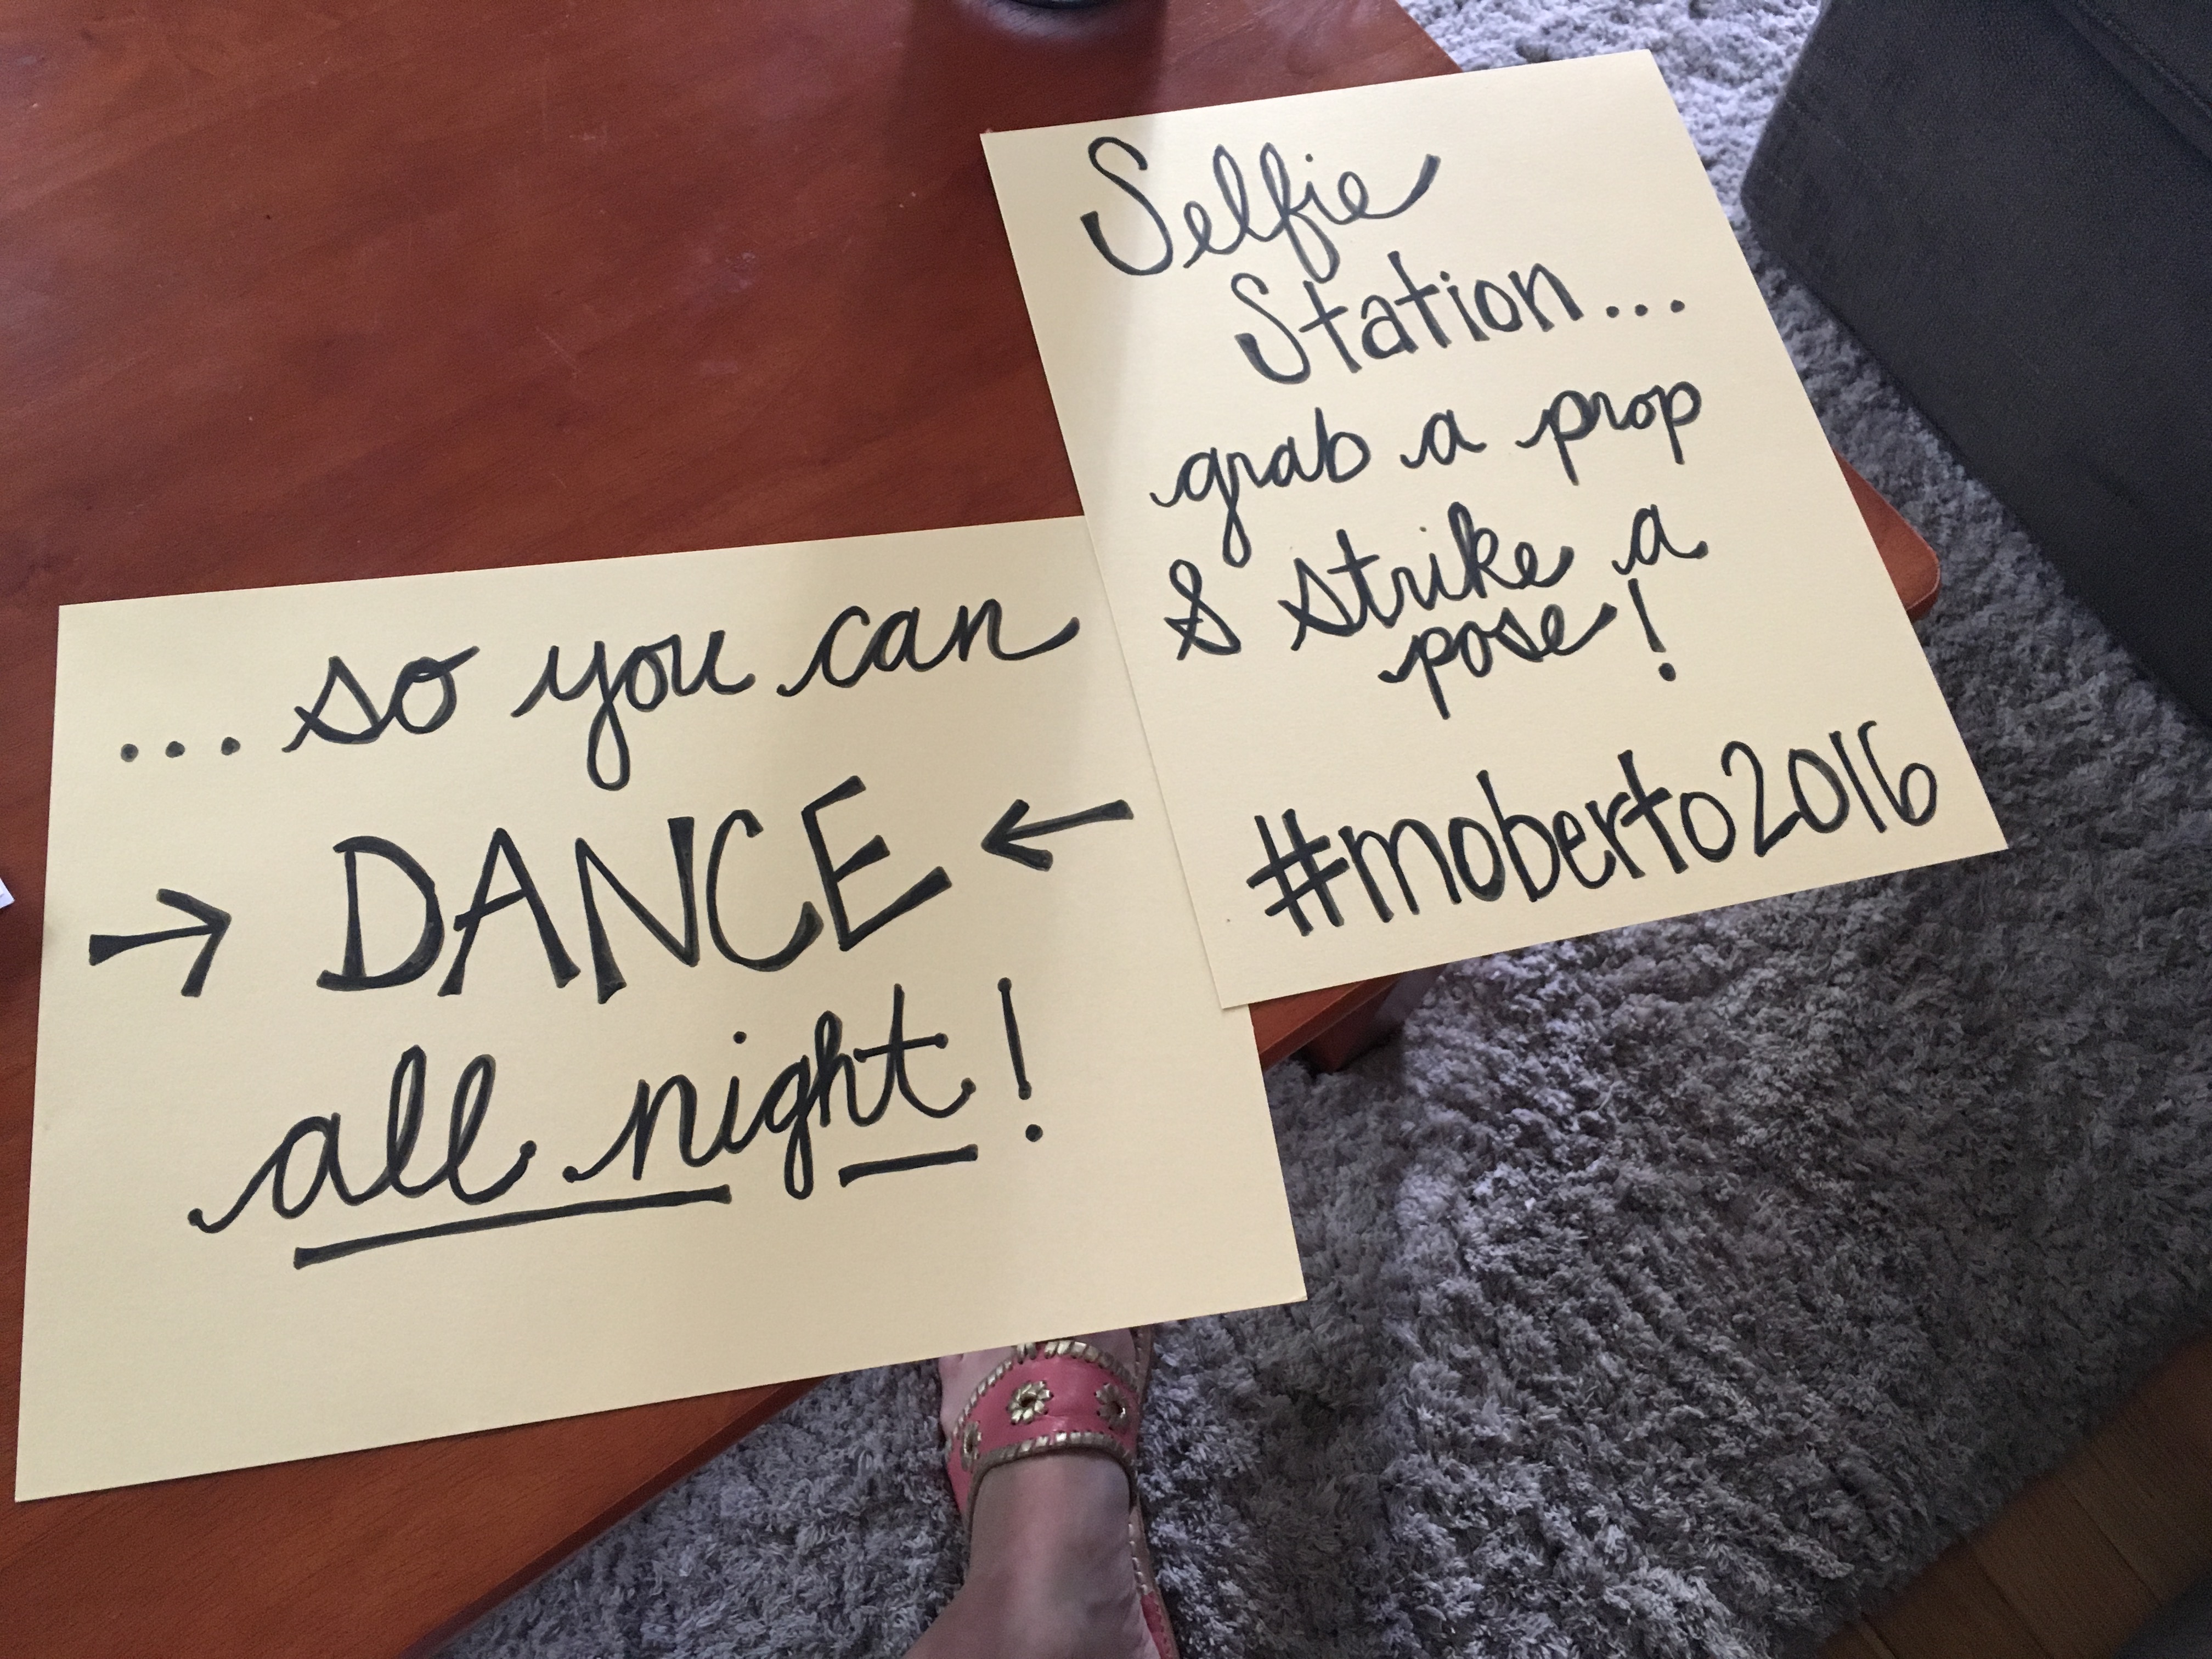 ...so you can
→ DANCE ←
all night!
Selfie
Station...
grab a prop
& strike a
pose!
#moberto2016